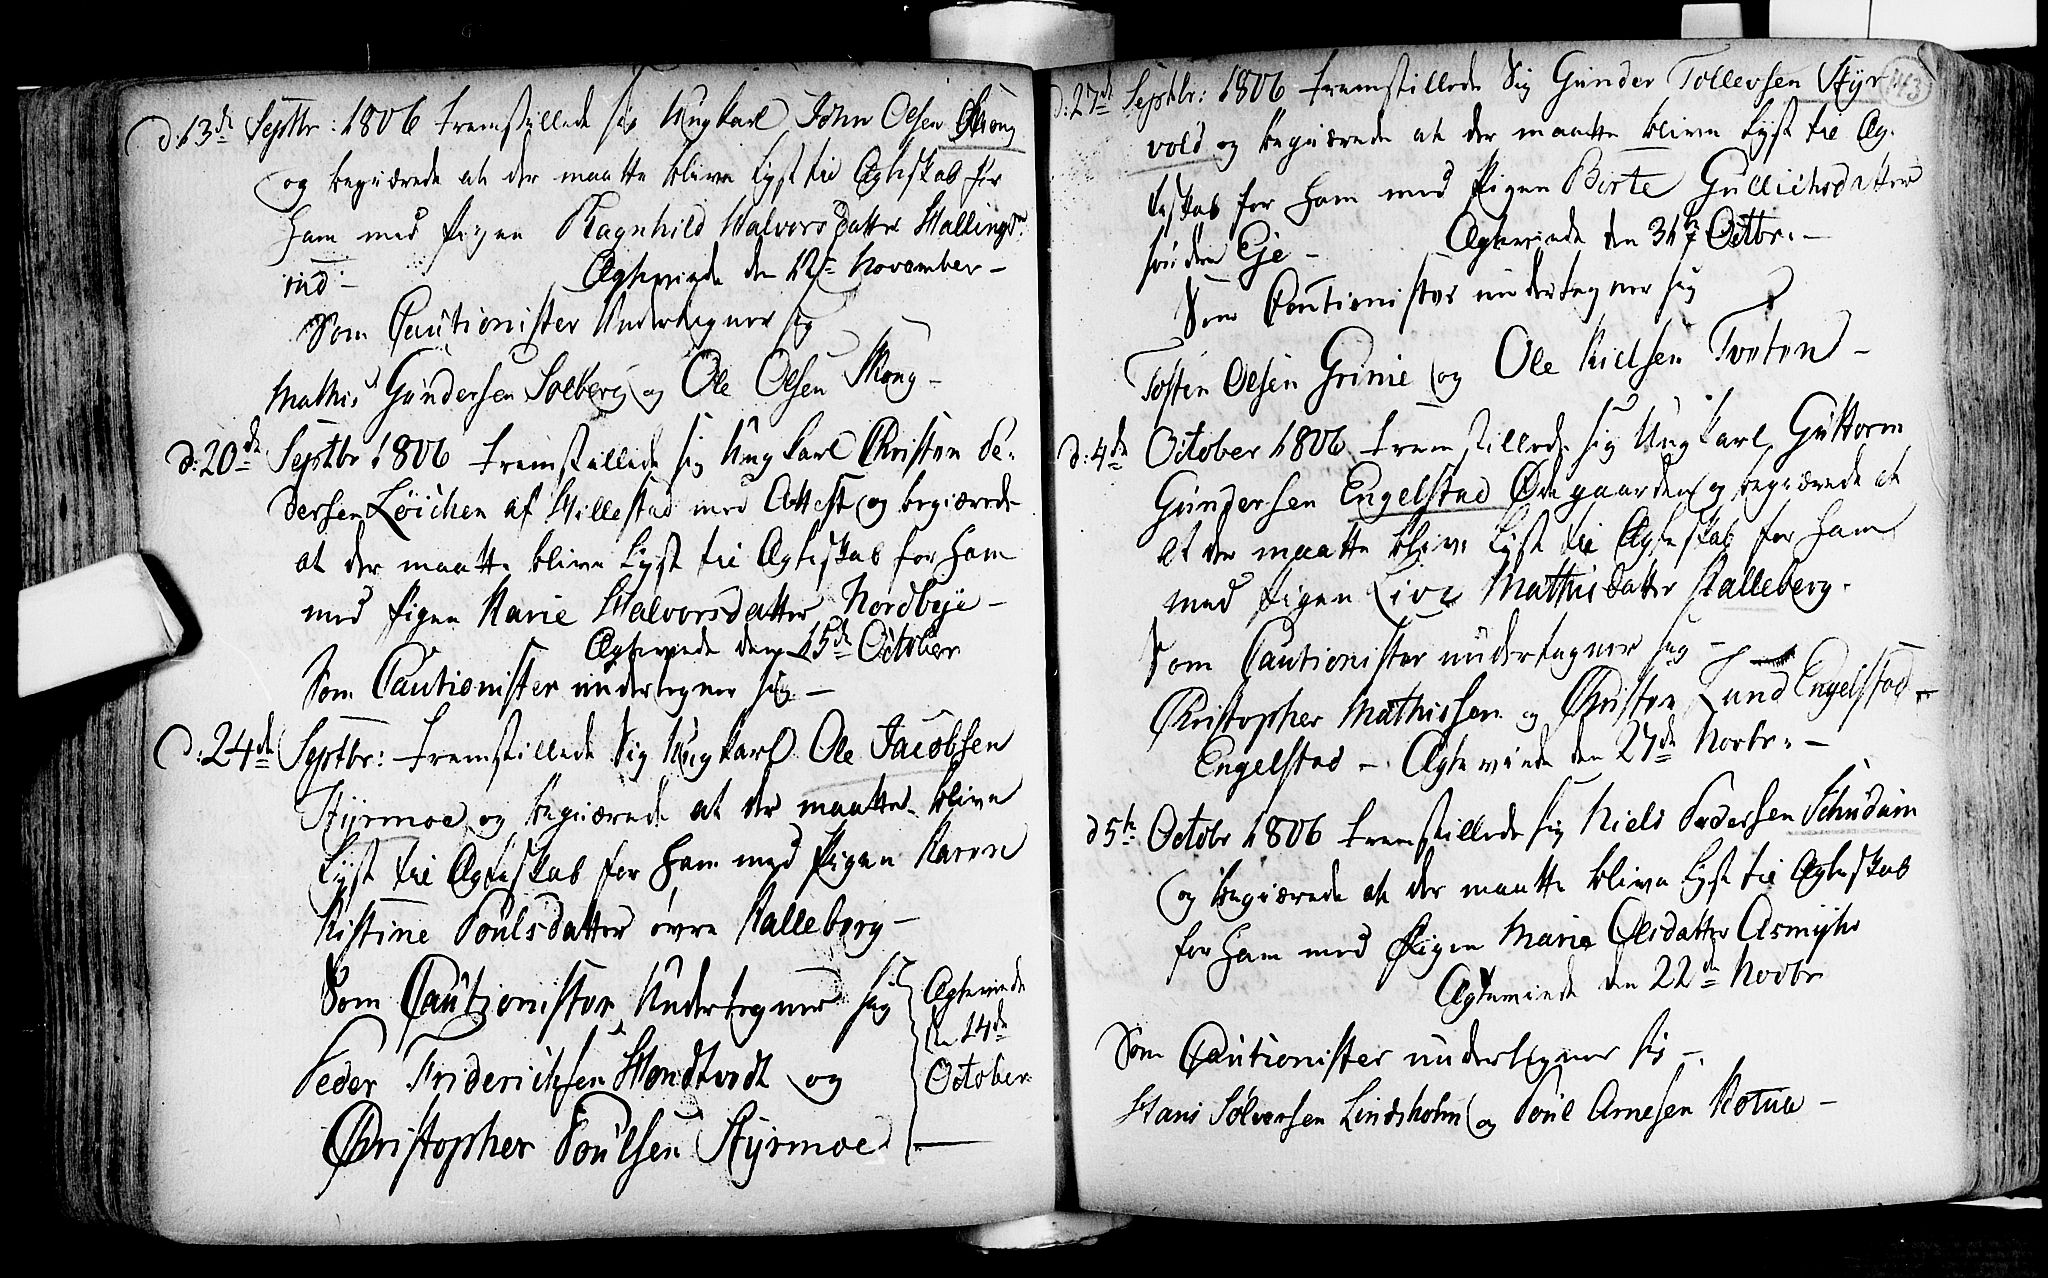 d: 13de Septbr: 1806 fremstillede sig Ungkarl John Olsen Skoug
og begiærede at der maatte blive lyst til Ægteskab for
ham med Pigen Ragnhild Halvorsdatter Hallings-
rud - Ægteviede den 12te November -
Som Cautionister Undertegner sig
Mathis Gundersen Solberg og Ole Olsen Skoug -
d: 20de Septbr 1806 fremstillede sig Ungkarl Christen Pe-
dersen Löichen af Hillestad med Attest og begiærede
at der maatte blive lyst til Ægteskab for ham
med Pigen Karie Halvorsdatter Nordbye -
Ægteviede den 15de October
Som Cautionister undertegner sig -
d: 24de Septbr: fremstillede Sig Ungkarl Ole Jacobsen
Styrmoe og begiærede at der maatte blive
lyst til Ægteskab for ham med Pigen Karen
Kistine Poulsdatter övre Kalleberg -
Som Cautionistor Undertegner sig
Peder Friderichsen Hondtvedt og
Christopher Poulsen Styrmoe
Ægteviede
den 14de
October
143
d: 27de Septbr: 1806 fremstillede Sig Gunder Tollevsen Styr-
vold og begiærede at der maatte blive lyst til Æg-
teskab for ham med Pigen Birte Gullichsdatter
söndre Eje - Ægteviede den 31te Octbr: -
Som Cautionister undertegner sig
Tosten Olsen Grinie og Ole Nielsen Tveten -
d: 4de October 1806 fremstillede sig Ungkarl Guttorm
Gundersen Engelstad Ödegaarden og begiærede at
at der maatte blive lyst til Ægteskab for ham
med Pigen Live Mathisdatter Kalleberg.
Som Cautionister undertegner sig -
Christopher Mathissen og Christen Lund Engelstad
Engelstad - Ægteviede den 27de Novbr: -
d 5te Octobr 1806 fremstillede sig Niels Pedersen Schudum
og begiærede at der maatte blive lyst til Ægteskab
for ham med Pigen Marie Olsdatter Asmyhr
Ægteviede den 22de Novbr
Som Cautionister undertegner sig -
Hans Sölversen Lindsholm og Poul Arnesen Kotua -